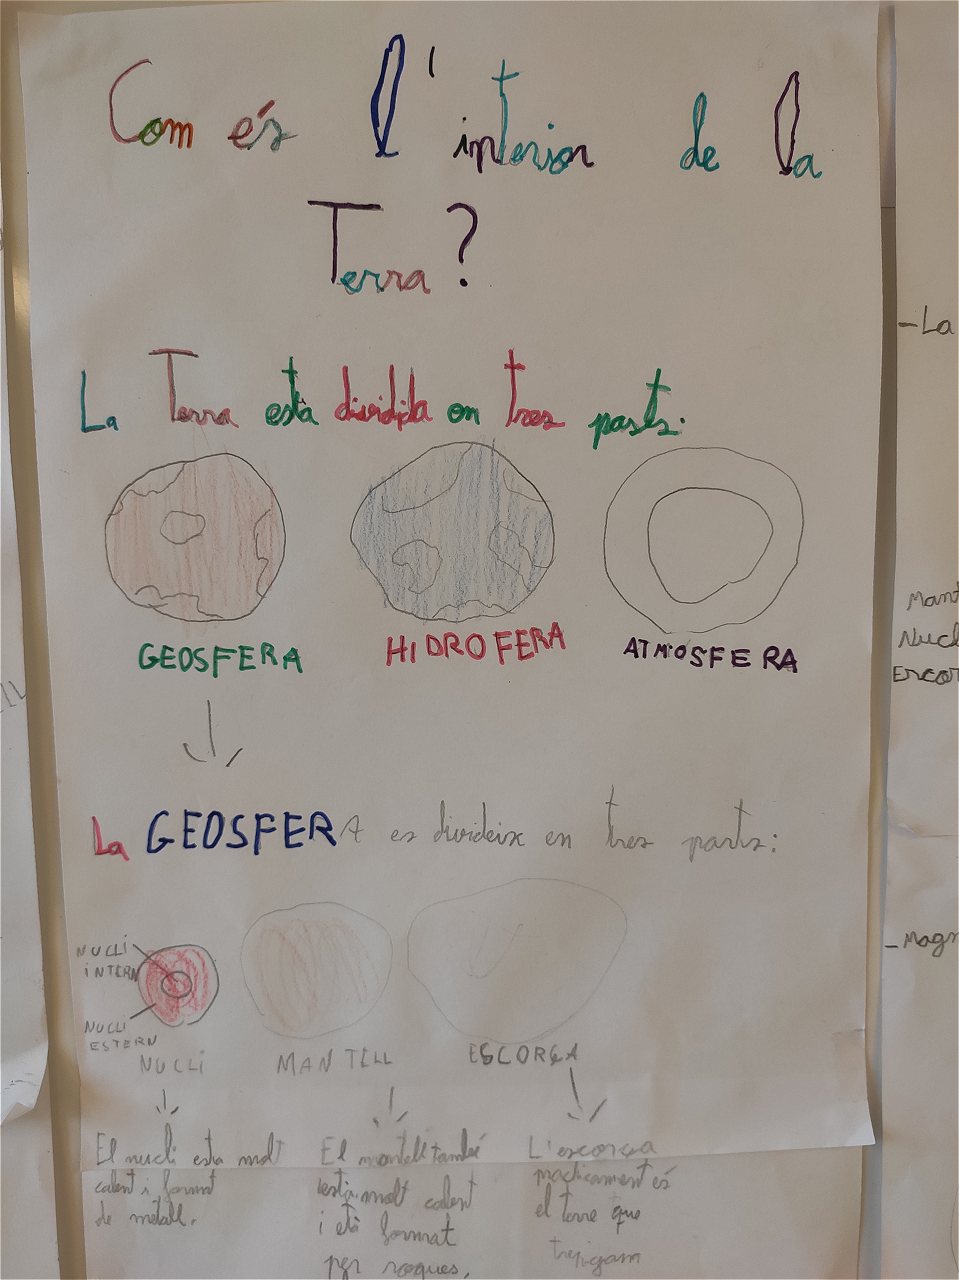 Com és l'interior de la
Terra?
La Terra està dividida en tres parts.
GEOSFERA
HIDROFERA
ATMOSFERA
La GEOSFERA es divideix en tres parts:
NUCLI
INTERN
NUCLI
ESTERN
NUCLI
MANTELL
ESCORÇA
El nucli esta molt
calent i format
de metall.
El mantell també
està molt calent
i età format
per roques.
L'escorça
practicament és
el terre que
trepigam
-La
Mant
Nucl
Escor
-Magn